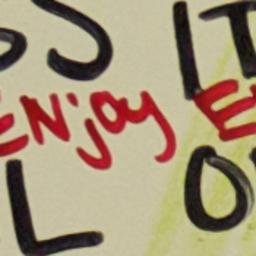 S IT
ENjoy E
L O